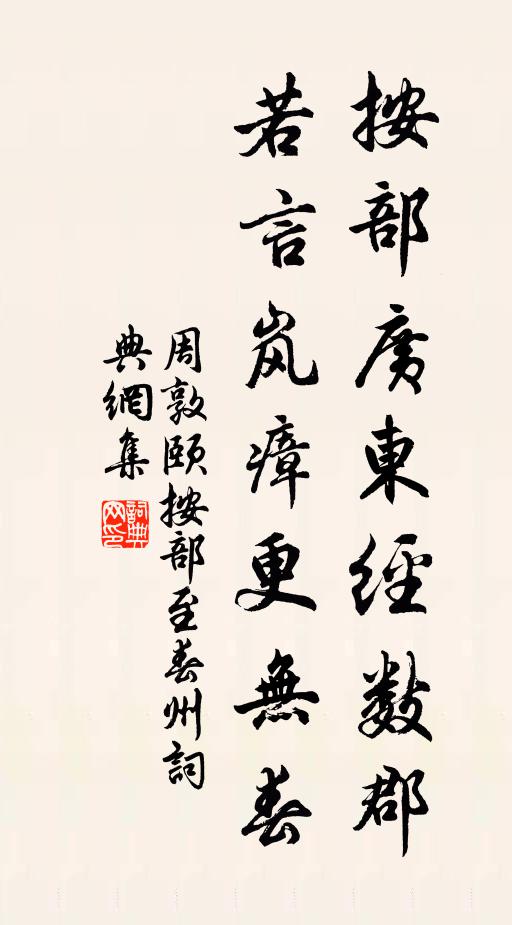 按部廣東經數郡
若言岚瘴更無春
周敦頤按部至春州詞
典網集
詞典
网印